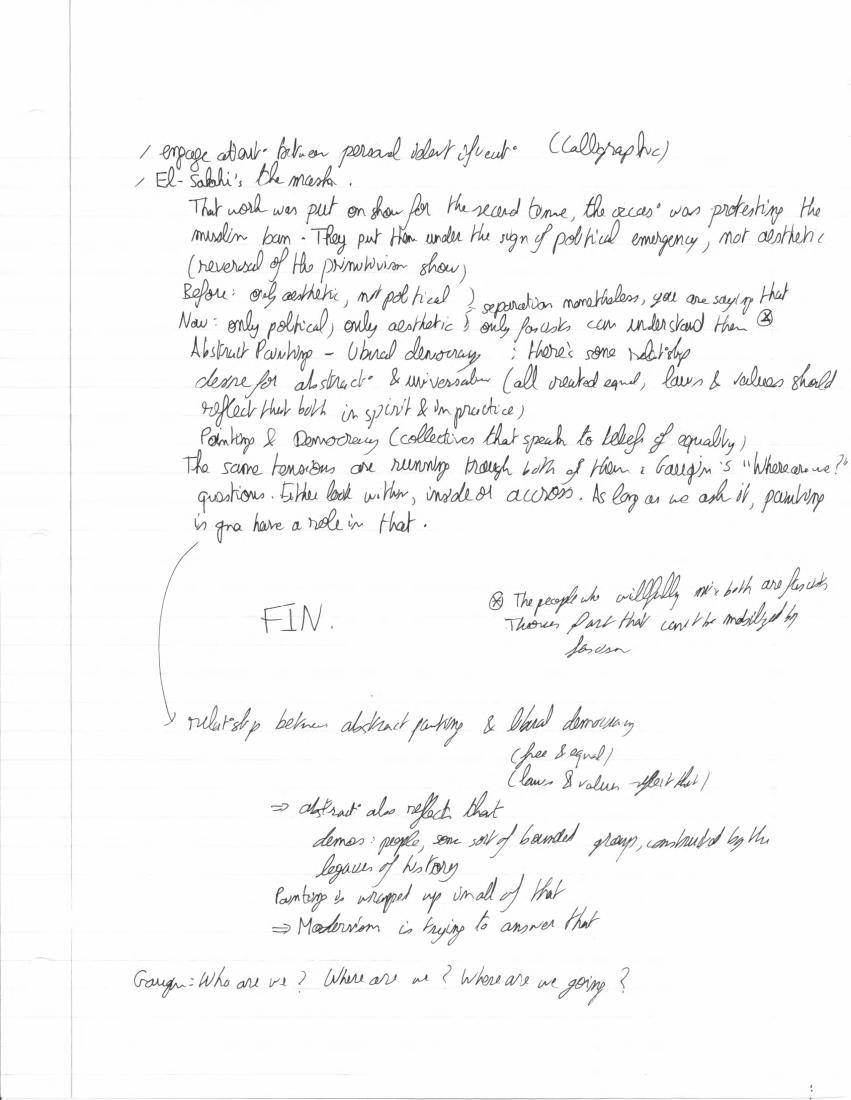 / engage abstract° between personal identificat° (Calligraphic)
/ El-Salahi's the mosk.
That work was put on show for the second time, the occas° was protesting the
muslim ban. They put them under the sign of political emergency, not aesthetic
(reversal of the primitivism show)
Before: only aesthetic, not political } separation nonetheless, you are saying that
Now: only political, only aesthetic } only fascists can understand them ⊗
Abstract Painting – Liberal democracy : there's some relat°ship
desire for abstract° & universalism (all created equal, laws & values should
reflect that both in spirit & in practice)
Painting & Democracy (collectives that speak to beliefs of equality)
The same tensions are running trough both of them : Gaugin's "Where are we?"
questions. Either look within, inside or accross. As long as we ask it, painting
is gna have a role in that.
⊗ The people who willfully mix both are fascists
FIN.
Theres part that can't be mobilized by
fascism
relat°ship between abstract painting & liberal democracy
(free & equal)
(laws & values reflect that)
⇒ abstract° also reflects that
demos: people, some sort of bounded group, constructed by the
legacies of history
Painting is wrapped up in all of that
⇒ Modernism is trying to answer that
Gaugin: Who are we? Where are we? Where are we going?